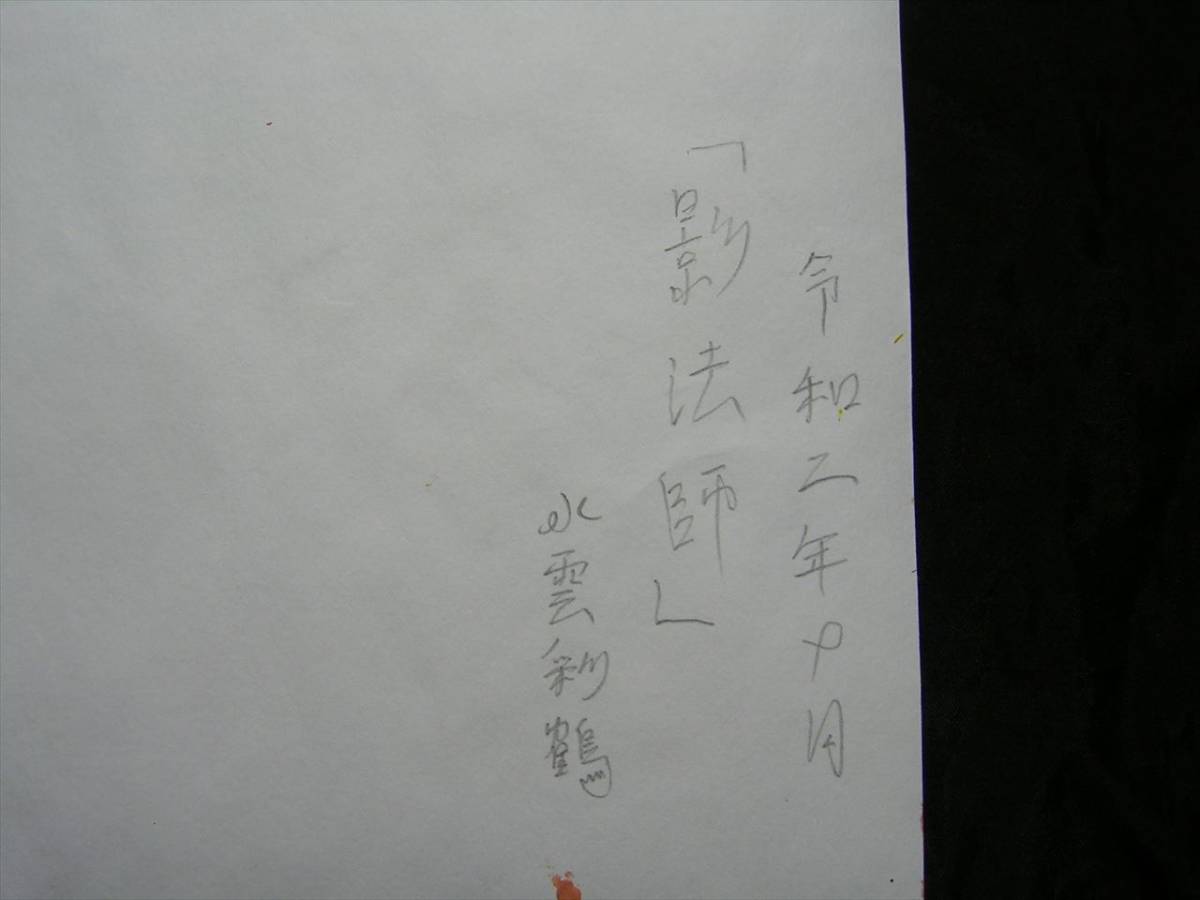 令和二年十月
「影法師」
水雲彩鶴